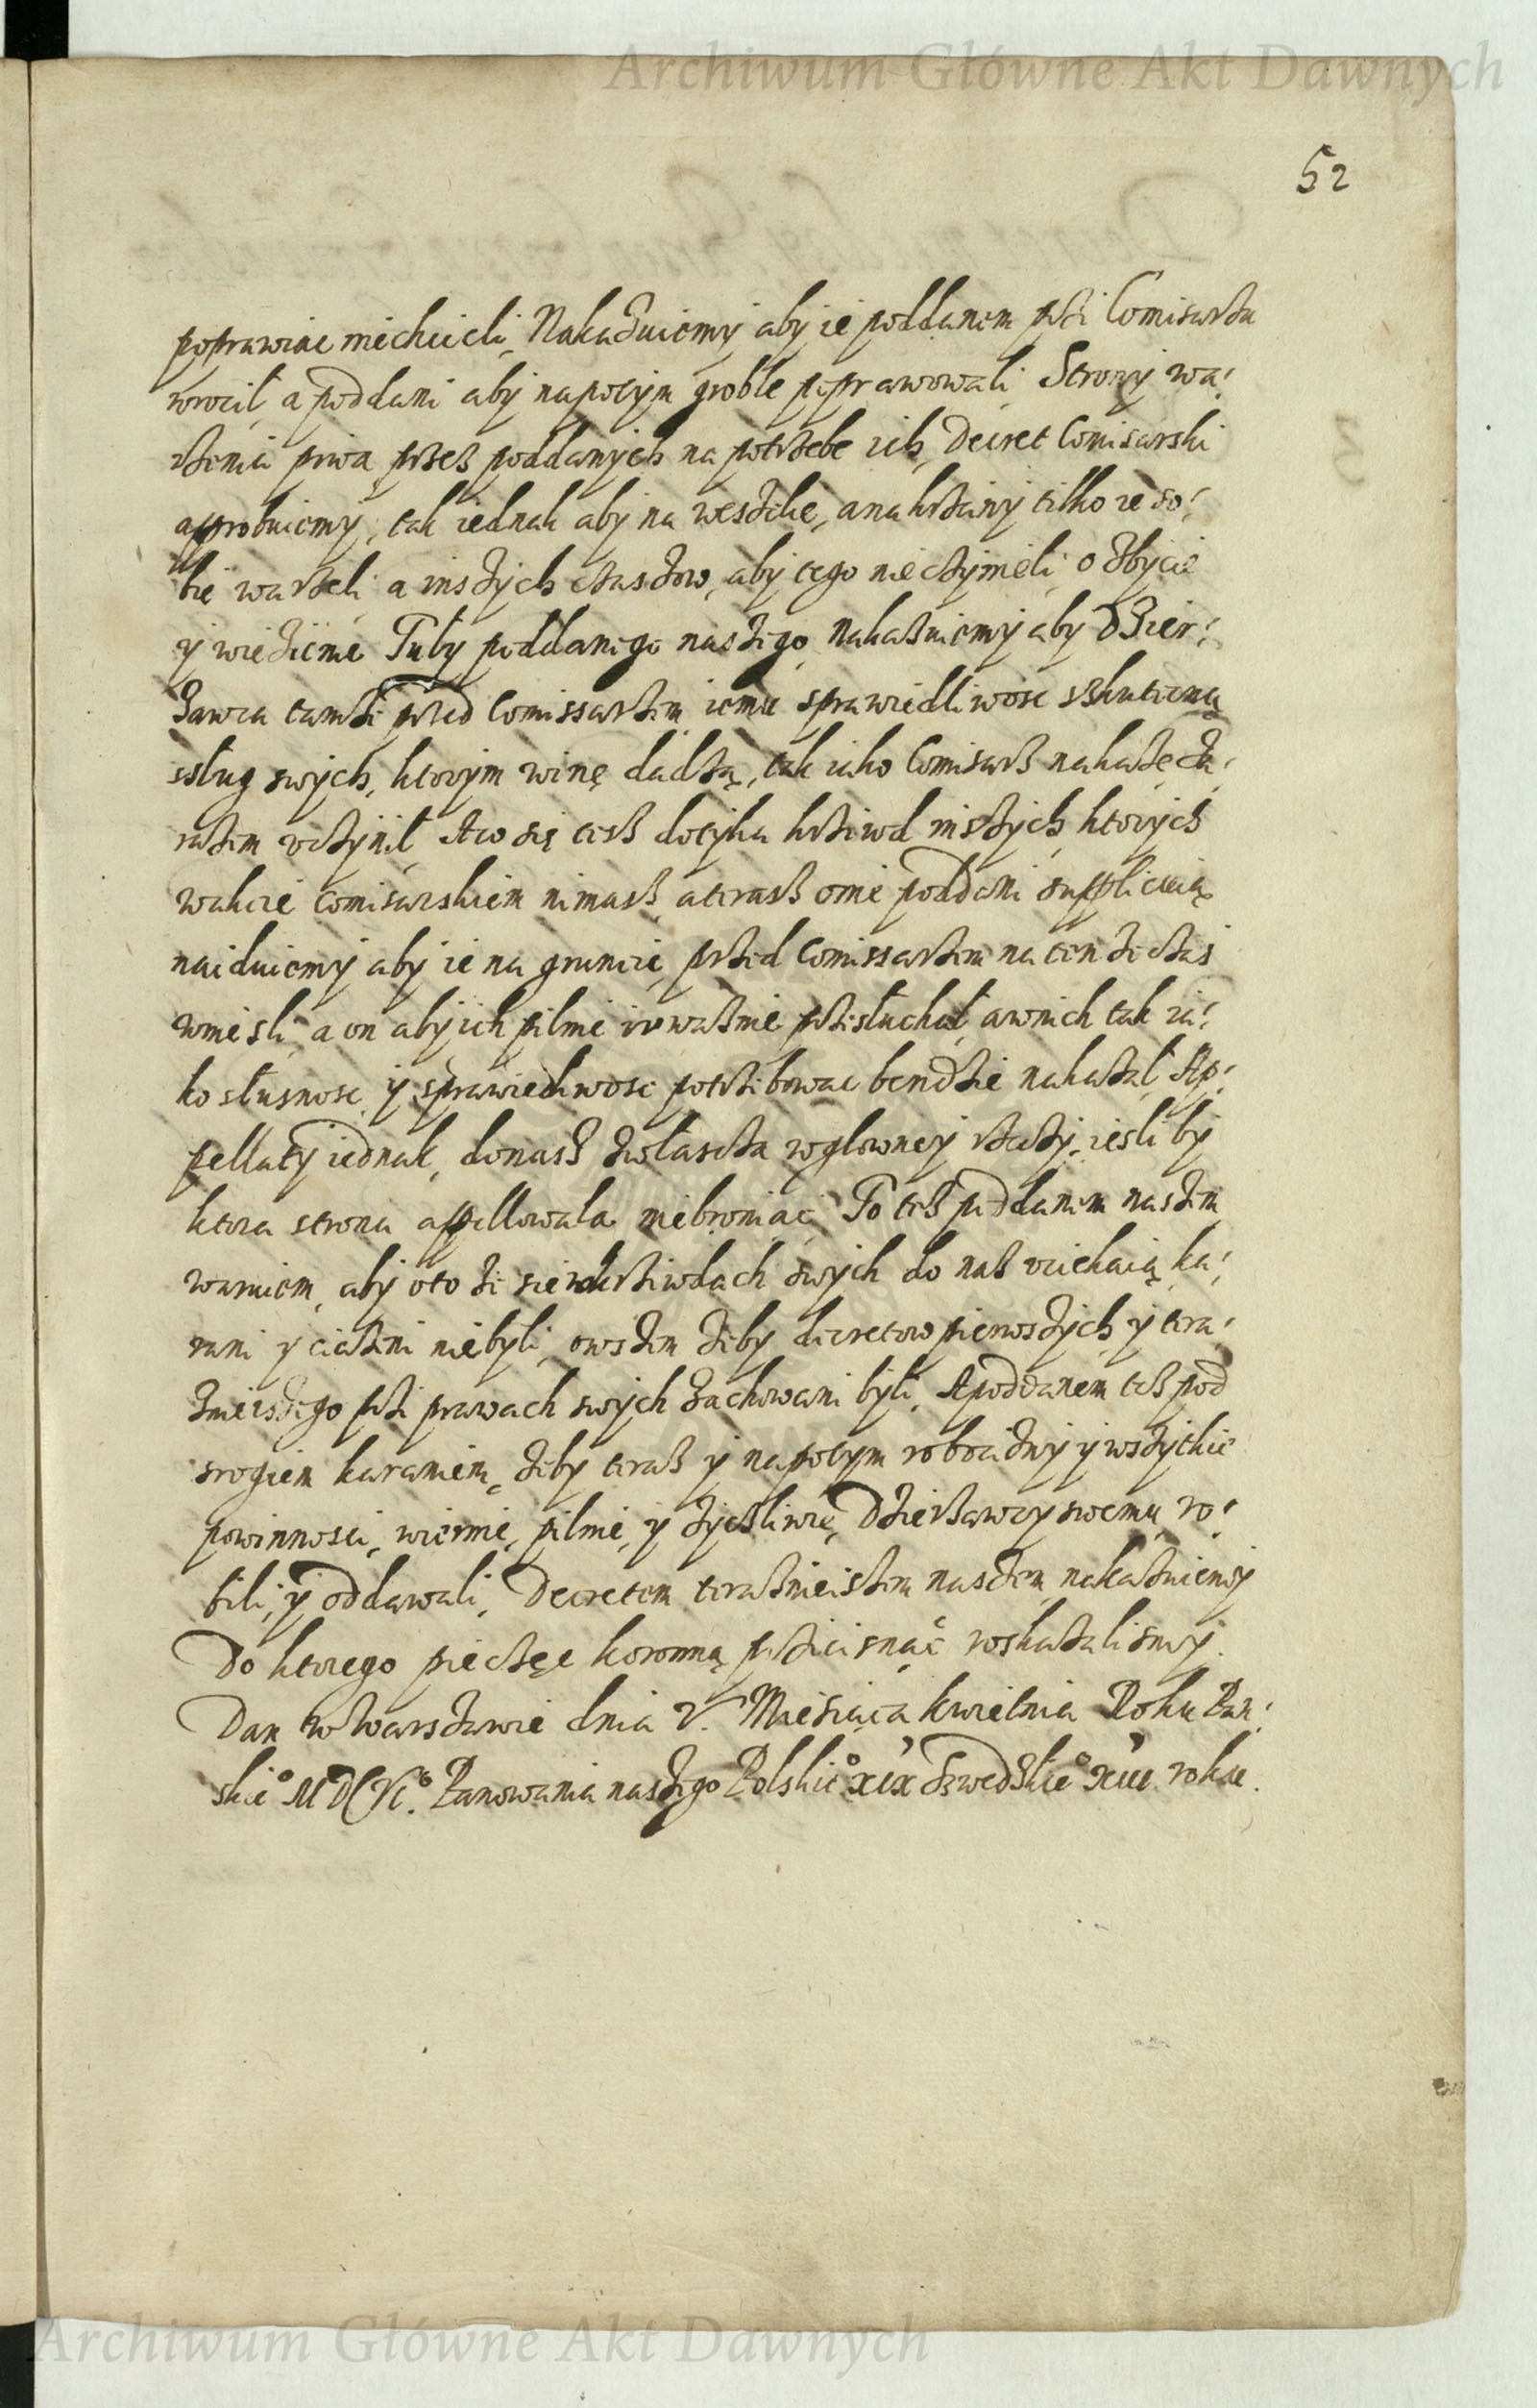 Archiwum Główne Akt Dawnych
52
poprawiac niechcieli, Nakazuiemy aby ie poddanem przi Comisarzu
wrocił a poddani aby napotym groble poprawowali. Strony wa:
rzenia piwa przes poddanych na potrzebe ich, Decret Comisarski
approbuiemy, tak iednak aby na wesele, a na krzciny tilko ie so:
bie warzeli a inszych czaszow, aby tego nieczynieli, o zbycie
y wiezienie Tuby poddanego naszego nakazuiemy aby Dzier:
zawca tamże przed Comissarzem iemu sprawiedliwosc skuteczną
sslug swych, ktorym winę dadzą, tak iako Comisarz nakaże za:
razem uczynił. A co się tesz dotyka krziwd inszych, ktorych
wakcie Comisarskiem nimasz, a terasz o nie poddani supplicuią
naiduiemy aby ie na gruncie przed Comissarzem na ten że czas
wnieśli, a on aby ich pilnie i uwaznie przisłuchał, a wnich tak ia:
ko słusnosc y sprawiedliwosc potrzibowac bendzie nakazał. Ap:
pellaty iednak, donasz zwłascza wgłowney rzeczy, iesli by
ktora strona apellowala, niebroniąc. To tesz poddanem naszem
waruiem, aby oto że sie wkrziwdach swych do nas uciekaią, ka:
rani y ciążeni niebyli, owszem żeby decretow pierwszych y tera:
znieiszego przi prawach swych zachowani byli. A poddanem tesz pod
srogiem karaniem, żeby teraz y napotym robocizny y wszytkie
powinnosci, wiernie, pilnie, y życzliwie, Dzierzawcy swemu ro:
bili, y oddawali, Decretem terazniejszem naszem nakazuiemy
Do ktorego pieczęc koronną przicisnąć roskazalismy.
Dan w Warszawie dnia V. Miesiąca kwietnia Roku Pan:
skieo MDCVIo. Panowania naszego Polskieo XIX Szwedzkieo XIII roku.
Archiwum Główne Akt Dawnych